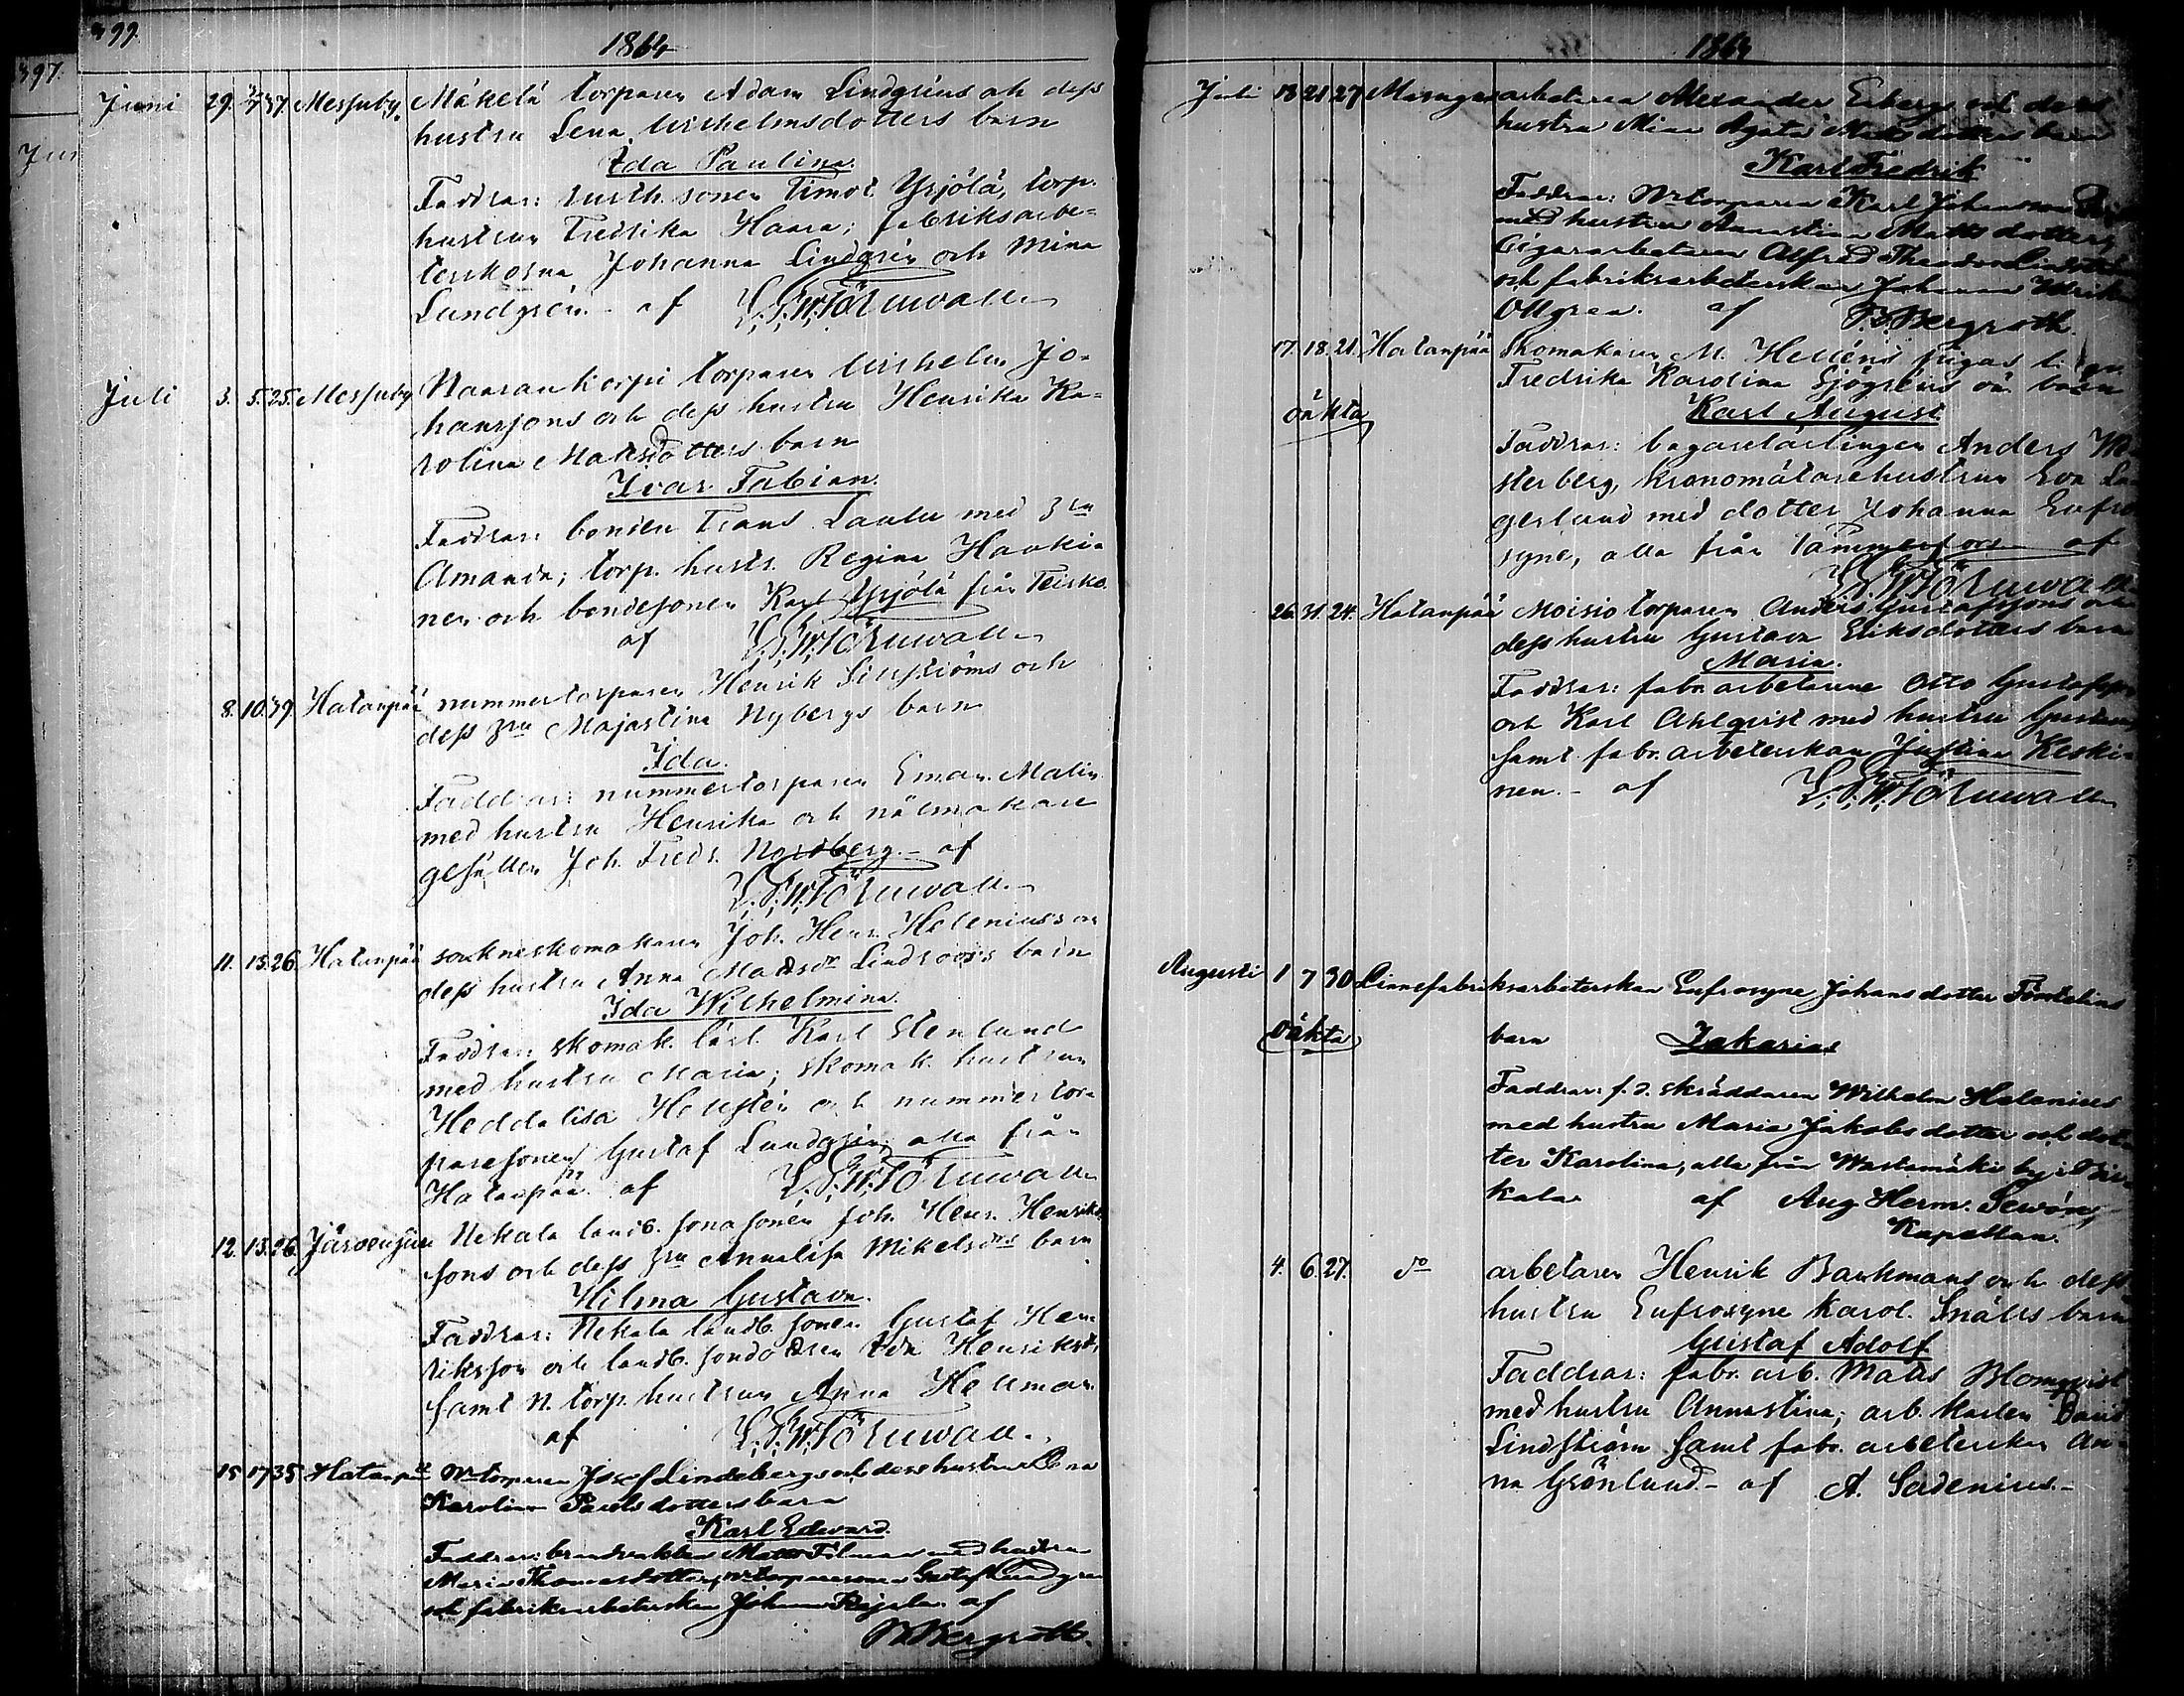 1864
Juni 29. 3/7 37. Messuby. Mäkelä torparen Adam Lindgréns och dess
hustru Lena Wilhelmsdotters barn
Ida Paulina.
Faddrar: rusth. sonen Timot Yrjölä, torp.
hustrun Fredrika Haara; fabriksarbe-
terskorna Johanna Lindgrén och Mina
Lundgrén. - af
Juli 3. 5. 25. Messuby Naarankorpi torparen Wilhelm Jo-
hanssons och dess hustru Henrika Ka-
rolina Matsdotters barn
Ivar Fabian.
Faddrar: bonden Frans Laulu med hru
Amanda; torp. hustr. Regina Hauki-
nen och bondesonen Karl Yrjölä från Teisko.
af
8. 10. 39. Hatanpää nummertorparen Henrik Linströms och
dess hru Majastina Nybergs barn
Ida.
Faddrar: nummertorparen Eman. Malin
med hustru Henrika och nålmakare
gesällen Joh. Fredr. Nordberg. - af
11. 13. 26. Hatanpää sockneskomakaren Joh. Henr. Helenius's och
dess hustru Anna Matsdr Lindroos's barn
Ida Wilhelmina.
Faddrar: skomak. lärl. Karl Stenlund
med hustru Maria; skomak. hustrun
Heddalisa Hollstén och nummertor-
paresonen Gustaf Lundgrén, alla från
Hatanpää. af
12. 13. 26. Järvensuu Nekala landb. sonasonen Joh. Henr. Henriks-
sons och dess hru Annalisa Mikelsdrs barn
Hilma Gustava.
Faddrar: Nekala landb. sonen Gustaf Hen-
riksson och landb. sondottren Eva Henriksdr
samt N. torp. hustrun Anna Hellman.
af
15 17 35 Hatanpää Nr torparen Josef Lindebergs och dess hustru Lena
Karolina Paulsdotters barn
Karl Edvard.
Faddrar: brandvakten Matts Filman med hustru
Maria Thomasdotter, nr torparesonen Gustaf Lundgren
och fabriksarbeterskan Johanna af
Bergroth.
1864
Juli 13 21 27 arbetaren Alexander Erbergs och dess
hustru Mina Agata Matsdotters barn
Karl Fredrik
Faddrar: Nr torparen Karl Johansson
med hustru Annastina Mattsdotter,
Cigararbetaren Alfred Theodor
och fabriksarbeterskan Johanna Ulrika
Öllgren. af Bergroth.
17. 18. 21. Hatanpää Skomakaren M. Helléns pigas
Fredrika Karolina Sjögréns oä. barn
oäkta
Karl August
Faddrar: bagarelärlingen Anders We-
sterberg, kronomätarehustrun Eva La-
gerlund med dotter Johanna Eufro-
syne, alla från Tammerfors af
26. 31. 24. Hatanpää Moisio torparen Anders Gustafssons och
dess hustru Gustava Eriksdotters barn
Maria.
Faddrar: fabr. arbetarene Otto Gustafsson
och Karl Ahlqvist med hustru Gustava,
samt fabr. arbeterskan Justina Keski-
nen. - af
Augusti 1 7 30 Linnefabriksarbeterskan Eufrosyne Johansdotter
oäkta barn Zakarias
Faddrar: f.d. skräddaren Wilhelm Helenius
med hustru Maria Jakobsdotter och dot-
ter Karolina, alla från Wastamäki by i Bir-
kala. af Aug. Herm. Sewón,
Kapellan.
4. 6. 27. do arbetaren Henrik Backmans och dess
hustru Eufrosyne Karol. Snälls barn
Gustaf Adolf
Faddrar: fabr. arb. Matts Blomqvist
med hustru Annastina; arb. karlen David
Lindström samt fabr. arbeterskan An-
na Grönlund. - af A. Serdenius. -